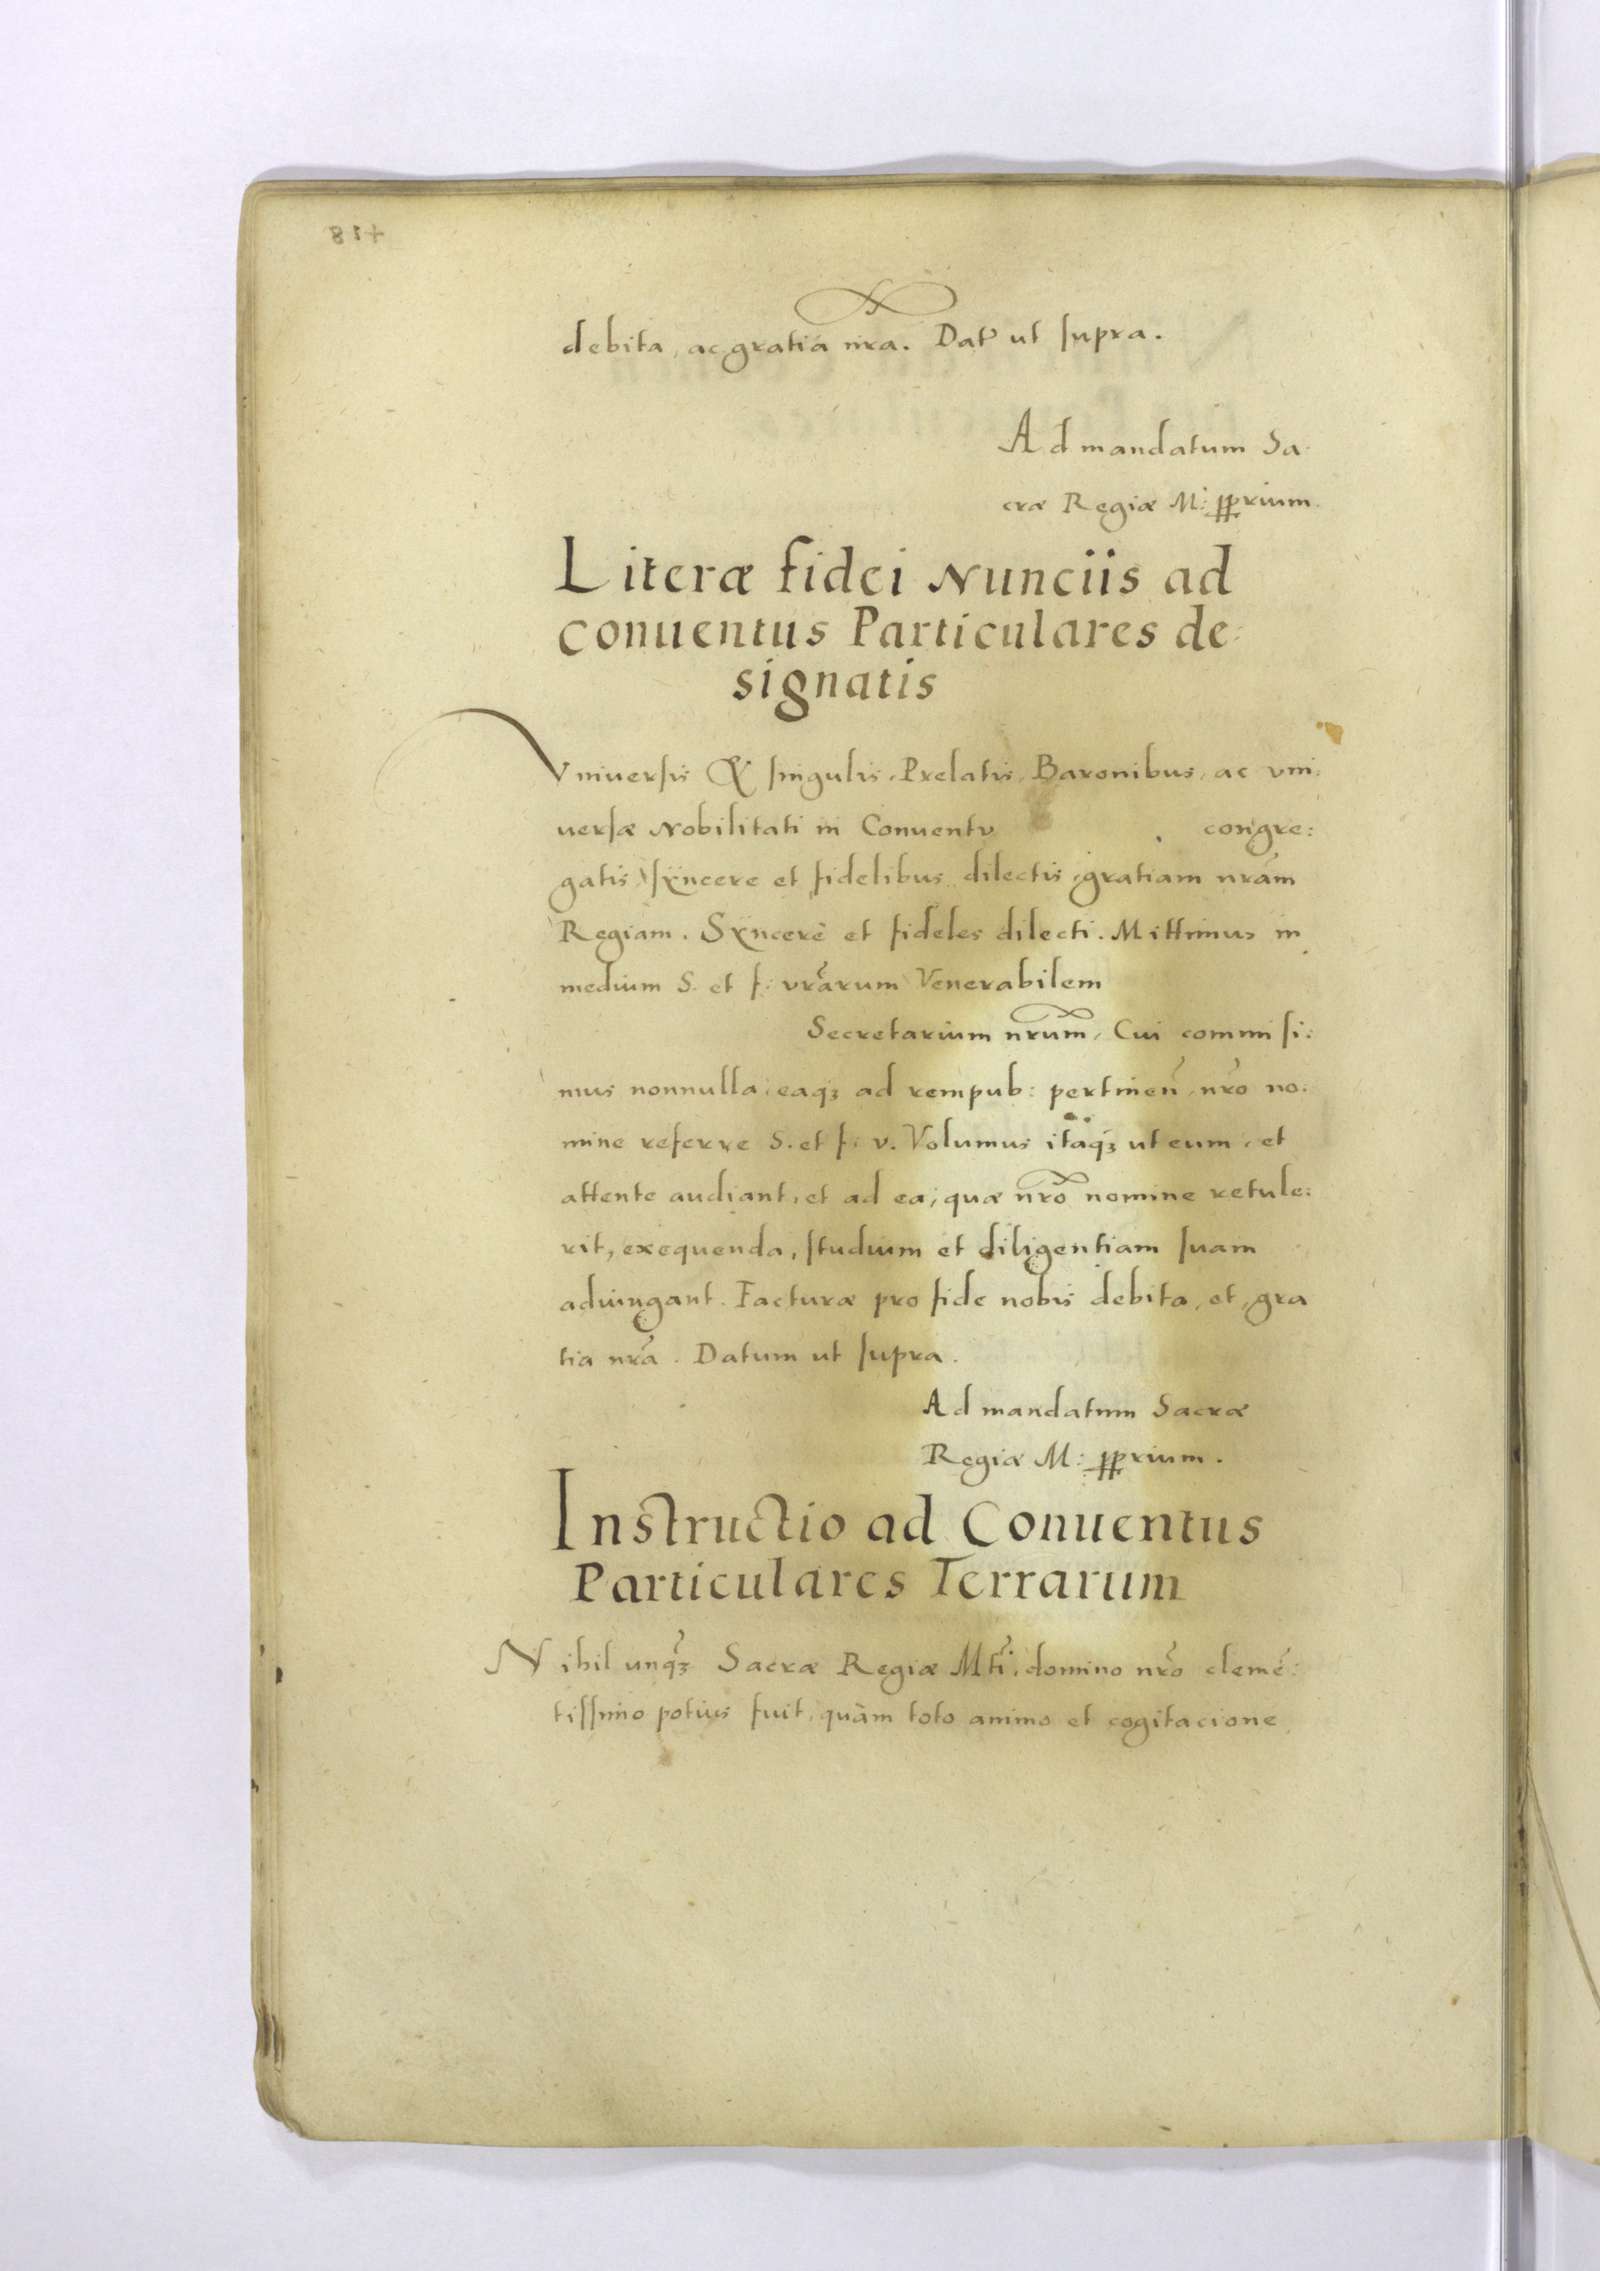 debita, ac gratia nra. Dat ut supra.
Ad mandatum Sa
cræ Regiæ M: pprium.
Literæ fidei Nunciis ad
conuentus Particulares de:
signatis
Vniuersis & singulis, Prelatis, Baronibus, ac vni:
uersæ Nobilitati in Conuentu congre:
gatis, sÿncere et fidelibus dilectis, gratiam nram
Regiam. Sÿncerè et fideles dilecti. Mittimus in
medium S. et f: vrarum Venerabilem
Secretarium nrum, Cui commisi:
mus nonnulla, eaqȝ ad rempub: pertinen, nro no:
mine referre S. et f: v. Volumus itaqȝ ut eum, et
attente audiant, et ad ea, quæ nro nomine retule:
rit, exequenda, studium et diligentiam suam
adiungant. Facturæ pro fide nobis debita, et gra
tia nra. Datum ut supra.
Ad mandatum Sacræ
Regiæ M: pprium.
Instructio ad Conuentus
Particulares Terrarum
Nihil unqȝ Sacræ Regiæ Mti: domino nro clemē:
tissimo potius fuit, quàm toto animo et cogitacione